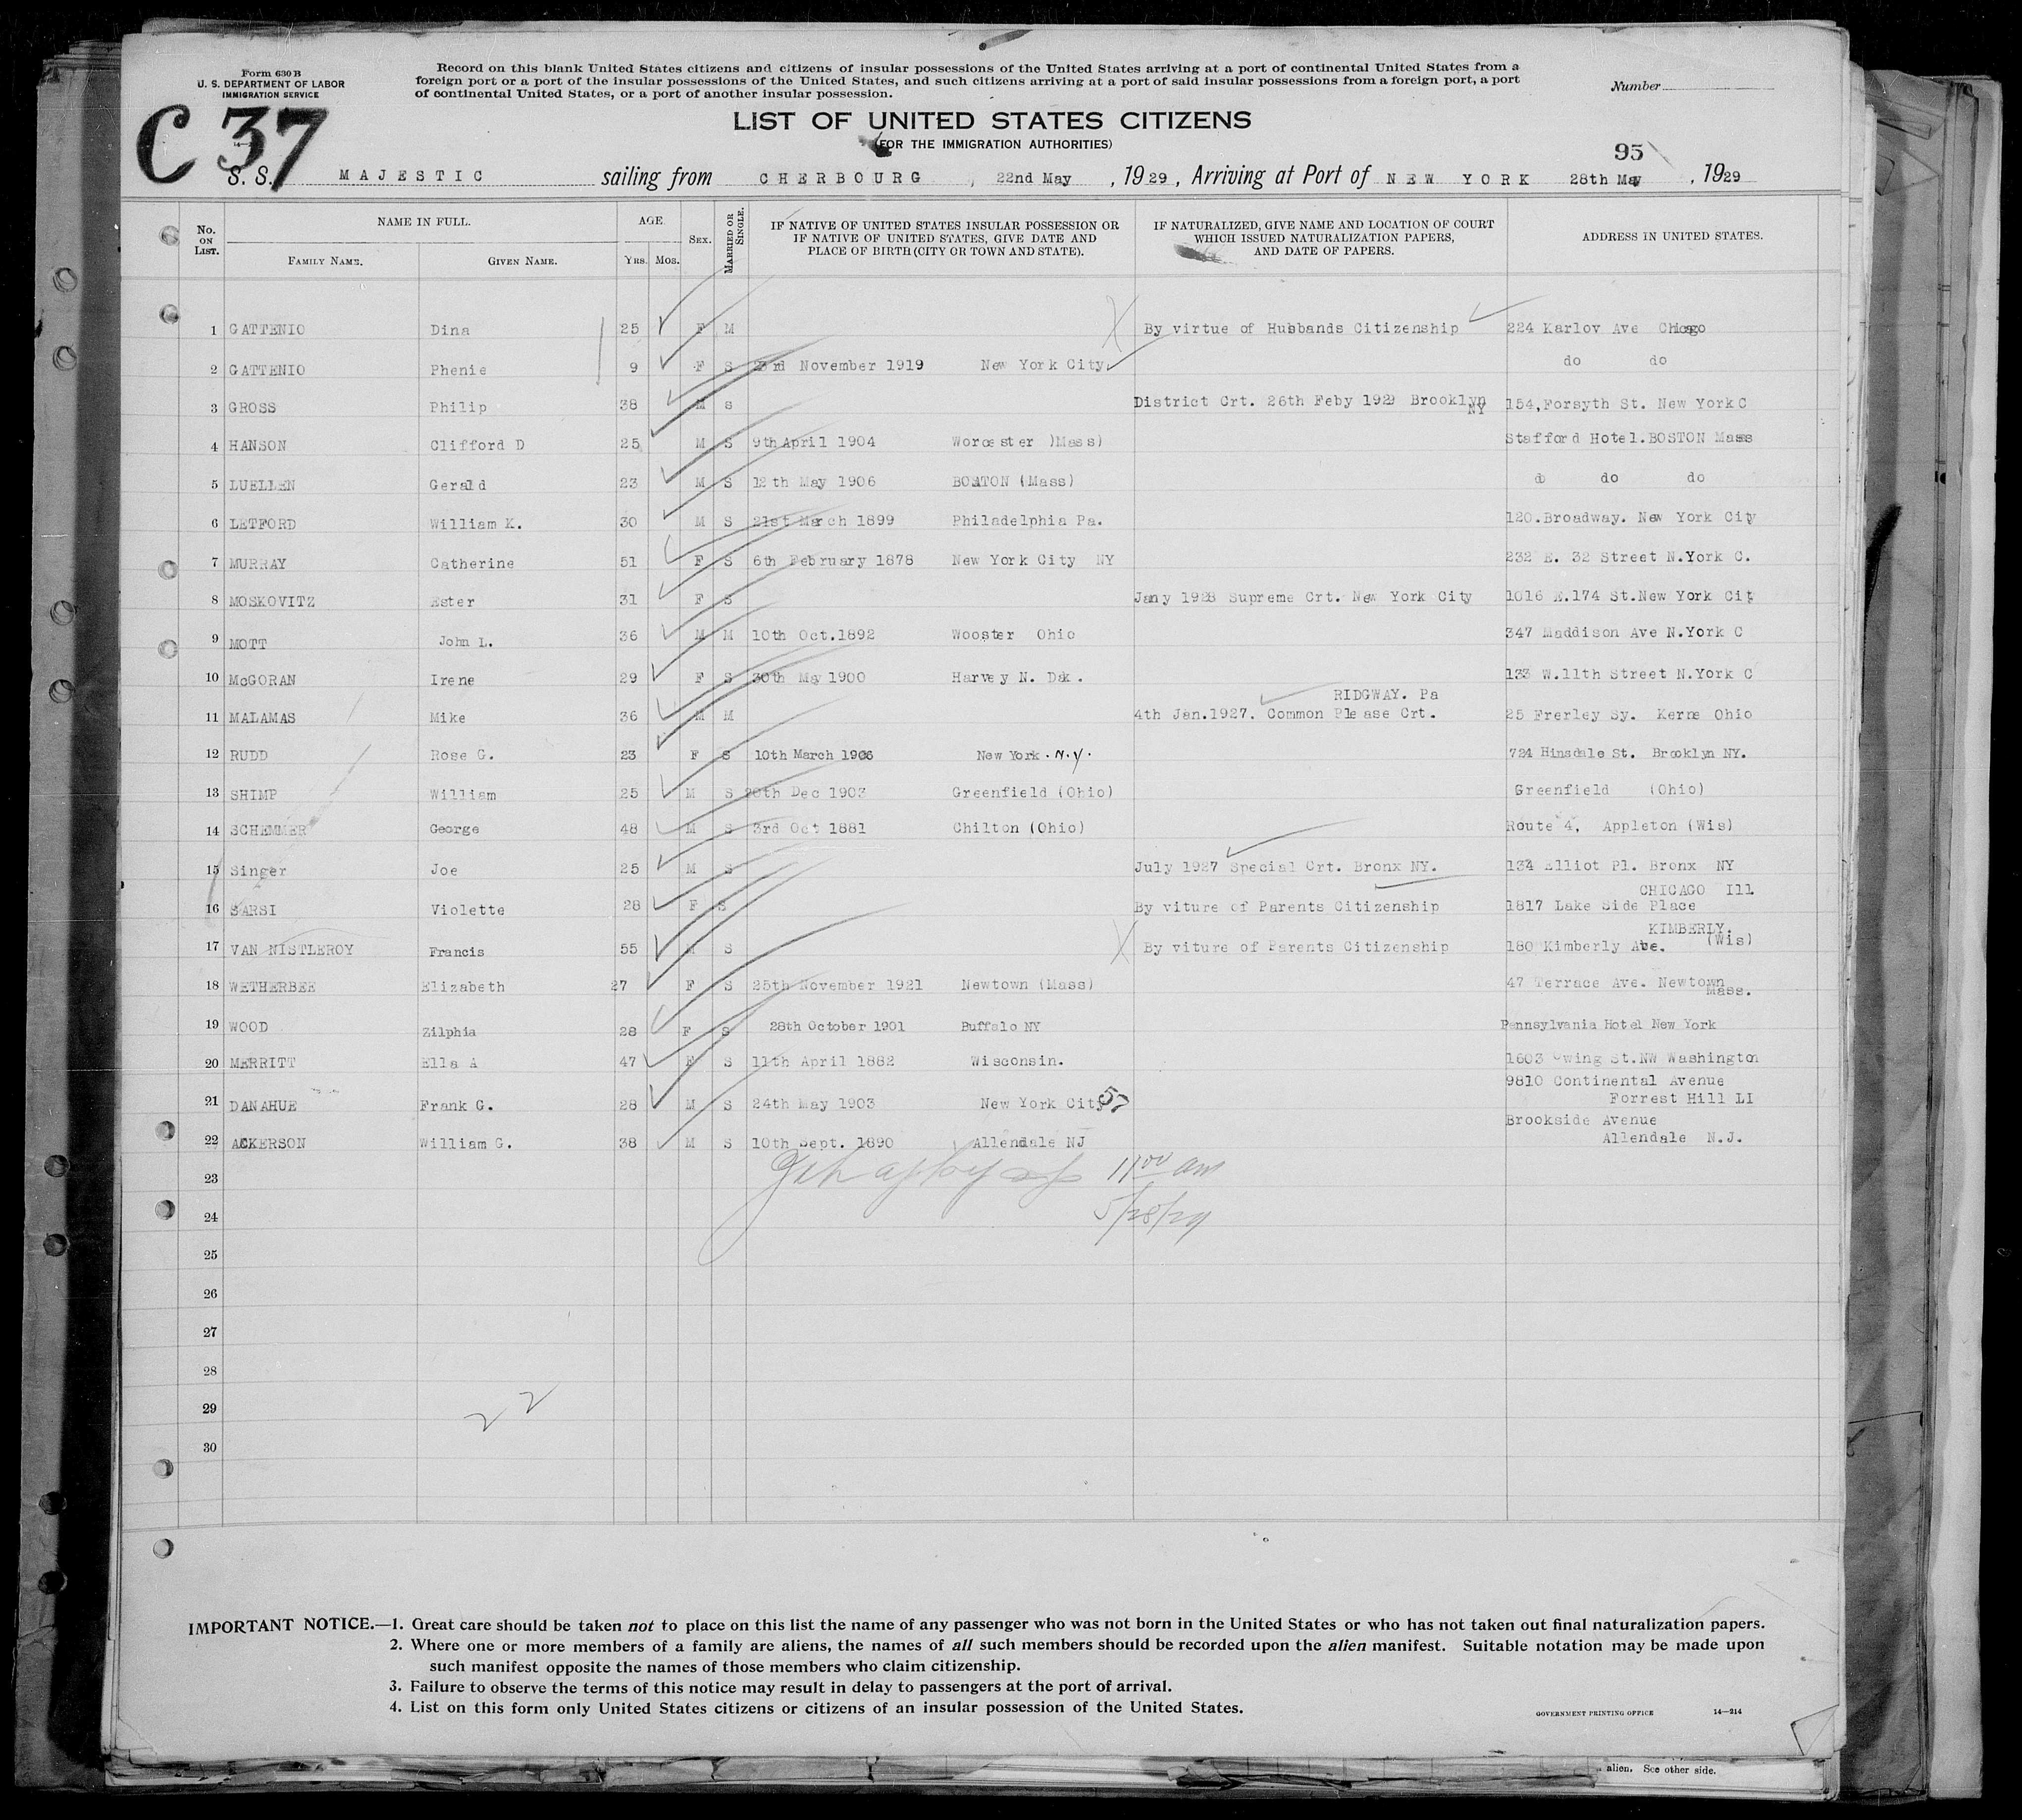 Form 630 B
U. S. DEPARTMENT OF LABOR
IMMIGRATION SERVICE
Record on this blank United States citizens and citizens of insular possessions of the United States arriving at a port of continental United States from a
foreign port or a port of the insular possessions of the United States, and such citizens arriving at a port of said insular possessions from a foreign port, a port
of continental United States, or a port of another insular possession.
Number
C 37
LIST OF UNITED STATES CITIZENS
(FOR THE IMMIGRATION AUTHORITIES)
95
S. S. MAJESTIC sailing from CHERBOURG, 22nd May, 1929, Arriving at Port of NEW YORK 28th May, 1929
No. ON LIST. NAME IN FULL. FAMILY NAME. GIVEN NAME. AGE YRS. MOS. SEX. MARRIED OR SINGLE. IF NATIVE OF UNITED STATES INSULAR POSSESSION OR IF NATIVE OF UNITED STATES, GIVE DATE AND PLACE OF BIRTH (CITY OR TOWN AND STATE). IF NATURALIZED, GIVE NAME AND LOCATION OF COURT WHICH ISSUED NATURALIZATION PAPERS, AND DATE OF PAPERS. ADDRESS IN UNITED STATES.
1 GATTENIO Dina 25 F M By virtue of Hubbands Citizenship 224 Karlov Ave Chicago
2 GATTENIO Phenie 9 F S 23rd November 1919 New York City do do
3 GROSS Philip 38 M s District Crt. 26th Feby 1929 Brooklyn NY 154,Forsyth St. New York C
4 HANSON Clifford D 25 M S 9th April 1904 Worcester )Mass) Stafford Hotel.BOSTON Mass
5 LUELLEN Gerald 23 M S 12th May 1906 BOATON (Mass) do do do
6 LETFORD William K. 30 M S 21st March 1899 Philadelphia Pa. 120.Broadway. New York City
7 MURRAY Catherine 51 F S 6th February 1878 New York City NY 232 E. 32 Street N.York C.
8 MOSKOVITZ Ester 31 F S Jany 1928 Supreme Crt. New York City 1016 E.174 St.New York Cit
9 MOTT John L. 36 M M 10th Oct.1892 Wooster Ohio 347 Maddison Ave N.York C
10 McGORAN Irene 29 F S 30th May 1900 Harvey N. Dak. 133 W.11th Street N.York C
RIDGWAY. Pa
11 MALAMAS Mike 36 M M 4th Jan.1927. Common Please Crt. 25 Frerley Sy. Kerne Ohio
12 RUDD Rose G. 23 F S 10th March 1906 New York . N.Y. 724 Hinsdale St. Brooklyn NY.
13 SHIMP William 25 M S Dec 1903 Greenfield (Ohio) Greenfield (Ohio)
14 SCHEMMER George 48 M S 3rd Oct 1881 Chilton (Ohio) Route 4, Appleton (Wis)
15 Singer Joe 25 M S July 1927 Special Crt. Bronx NY. 134 Elliot Pl. Bronx NY
CHICAGO Ill
16 SARSI Violette 28 F S By viture of Parents Citizenship 1817 Lake Side Place
KIMBERLY.
17 VAN NISTLEROY Francis 55 M S By viture of Parents Citizenship 180 Kimberly Ave. (Wis)
18 WETHERBEE Elizabeth 27 F S 25th November 1921 Newtown (Mass) 47 Terrace Ave. Newtown Mass.
19 WOOD Zilphia 28 F S 28th October 1901 Buffalo NY Pennsylvania Hotel New York
20 MERRITT Ella A 47 F S 11th April 1882 Wisconsin. 1603 Ewing St.NW Washington
9810 Continental Avenue
21 DANAHUE Frank G. 28 M S 24th May 1903 New York City 57 Forrest Hill LI
Brookside Avenue
22 ACKERSON William G. 38 M S 10th Sept. 1890 Allendale NJ Allendale N.J.
23 11 00 am
24 5/28/29
25
26
27
28
22
29
30
IMPORTANT NOTICE.—1. Great care should be taken not to place on this list the name of any passenger who was not born in the United States or who has not taken out final naturalization papers.
2. Where one or more members of a family are aliens, the names of all such members should be recorded upon the alien manifest. Suitable notation may be made upon
such manifest opposite the names of those members who claim citizenship.
3. Failure to observe the terms of this notice may result in delay to passengers at the port of arrival.
4. List on this form only United States citizens or citizens of an insular possession of the United States.
GOVERNMENT PRINTING OFFICE 14—214
alien. See other side.